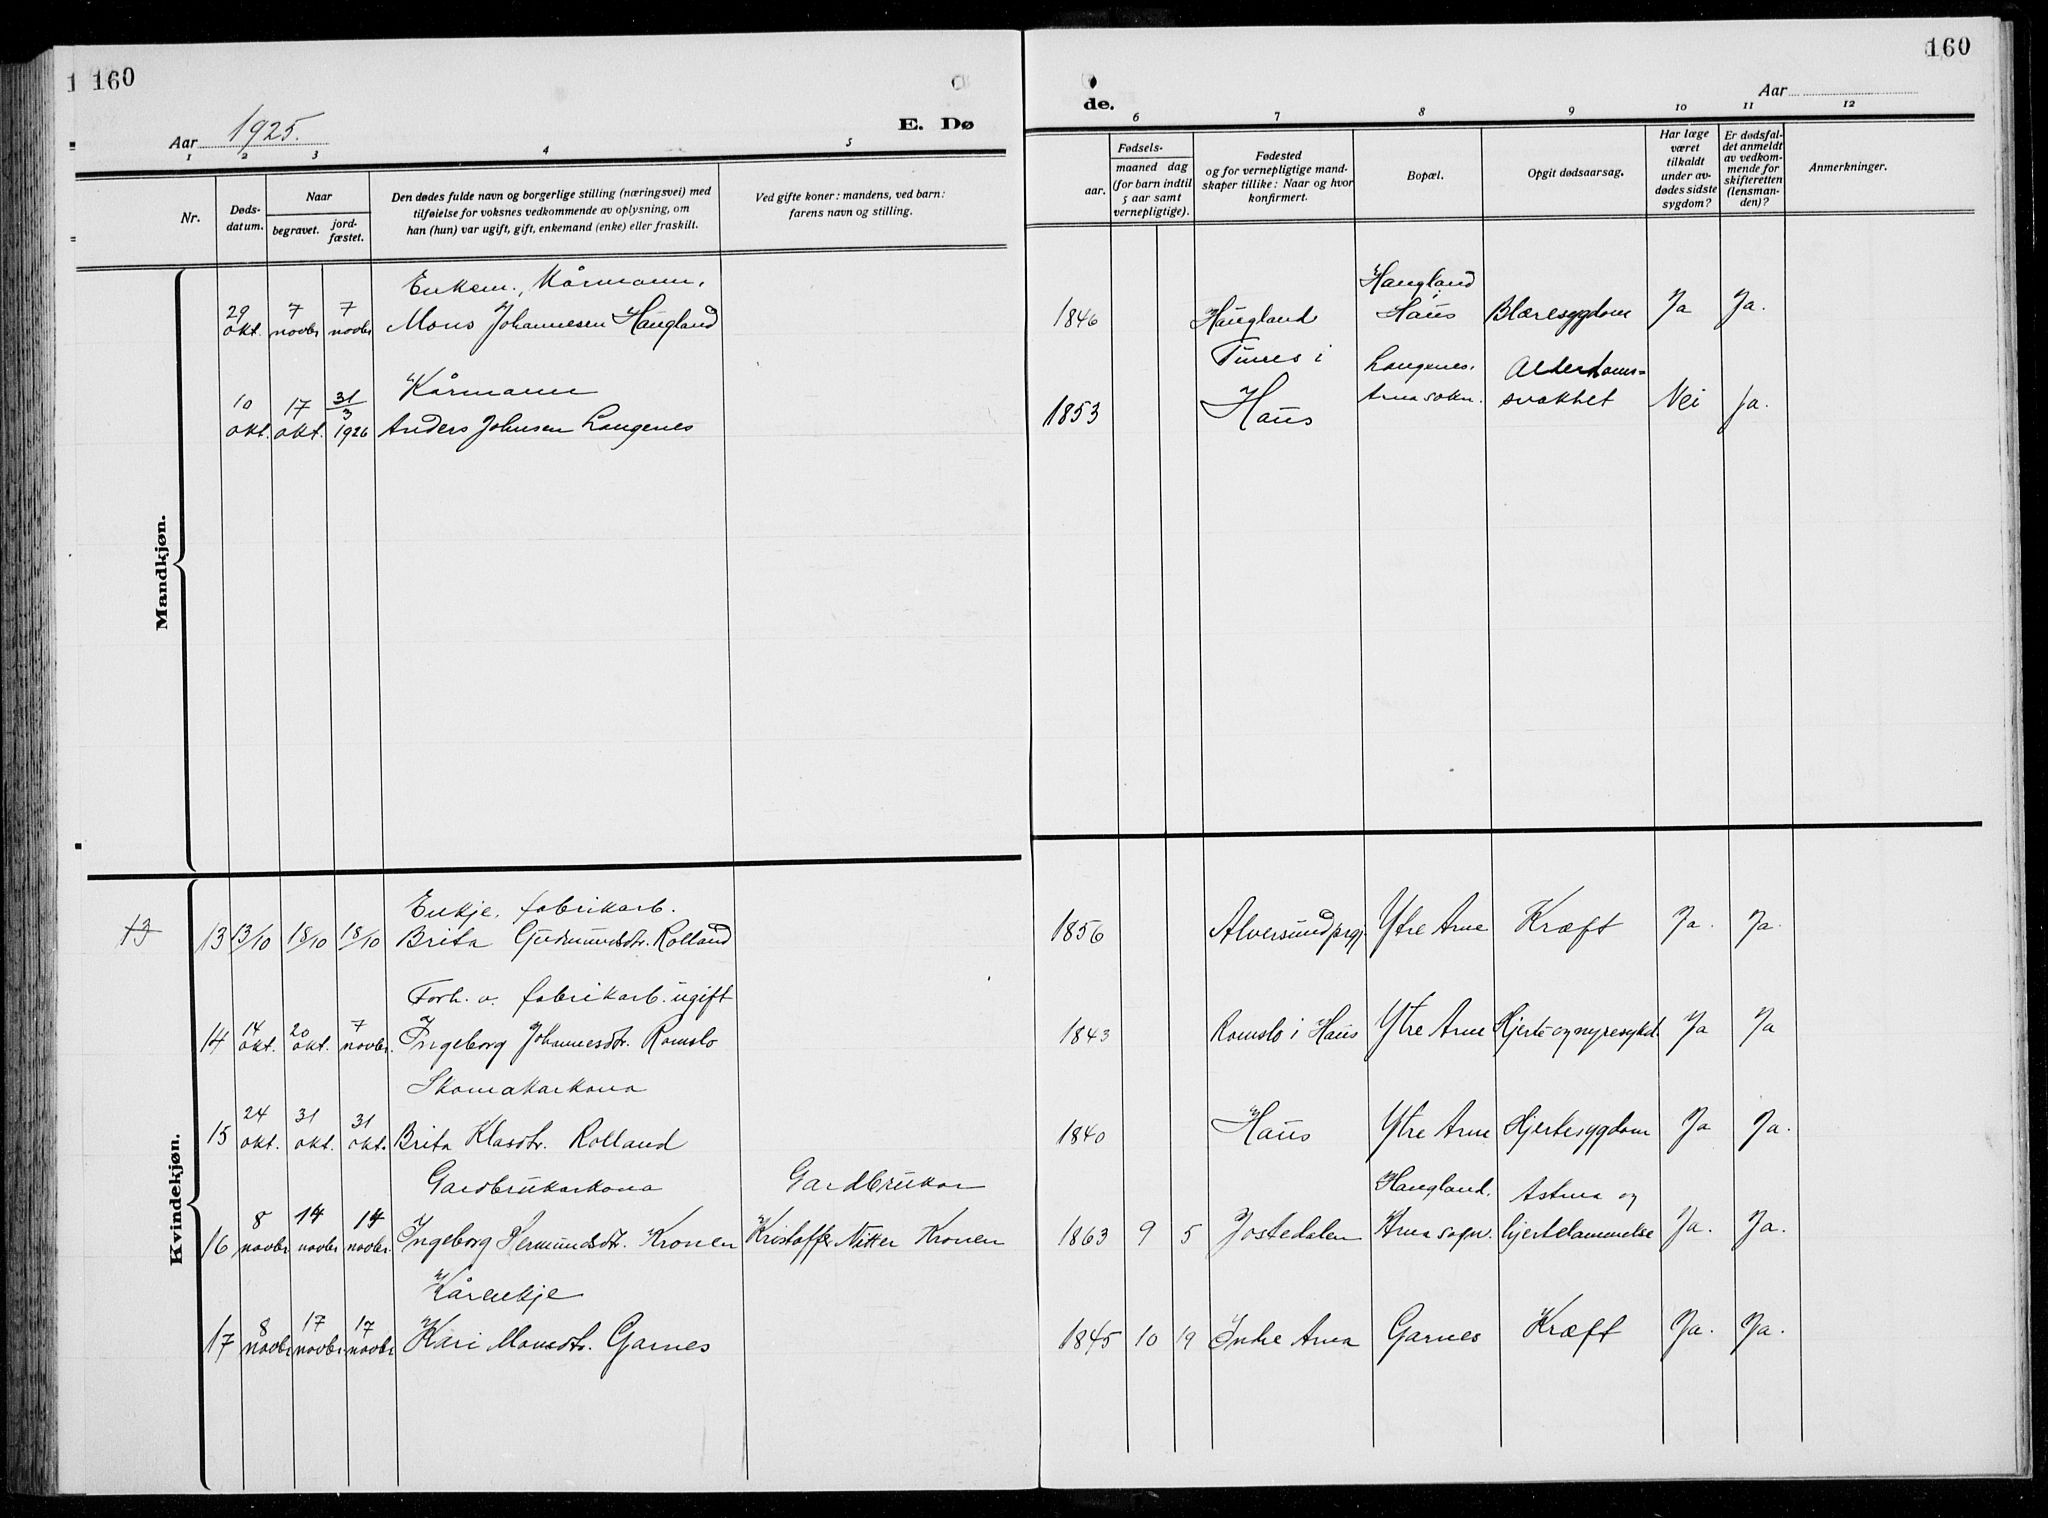 1 160
160
Aar 1925.
E. Dø
de.
Aar
1 2 3 4 5 6 7 8 9 10 11 12
Nr.
Døds-
datum.
Naar
begravet.
jord-
fæstet.
Den dødes fulde navn og borgerlige stilling (næringsvei) med
tilføielse for voksnes vedkommende av oplysning, om
han (hun) var ugift, gift, enkemand (enke) eller fraskilt.
Ved gifte koner: mandens, ved barn:
farens navn og stilling.
Fødsels-
aar.
maaned dag
(for barn indtil
5 aar samt
vernepligtige).
Fødested
og for vernepligtige mand-
skaper tillike: Naar og hvor
konfirmert.
Bopæl.
Opgit dødsaarsag.
Har læge
været
tilkaldt
under av-
dødes sidste
sygdom?
Er dødsfal-
det anmeldt
av vedkom-
mende for
skifteretten
(lensman-
den)?
Anmerkninger.
Mandkjøn.
Enkem., Kårmann,
29 okt. 7 novbr 7 novbr Mons Johannesen Haugland 1846 Haugland Haugland i Haus Blæresygdom Ja Ja.
Kårmann
10 okt. 17 okt. 31/3 1926 Anders Johnsen Langenes 1853 Tunes i Haus Langenes, Arna sokn. Alderdoms-
svakhet Nei Ja.
Kvindekjøn.
Enkje, fabrikarb.
13 13 13/10 18/10 18/10 Brita Gudmundsdtr. Rolland 1856 Alversund prgj. Ytre Arne Kræft Ja. Ja.
Forh. v. fabrikarb. ugift
14 14 okt. 20 okt. 7 novbr. Ingeborg Johannesdtr. Romslo 1843 Romslo i Haus Ytre Arne Hjerte- og nyresykd. Ja Ja
Skomakarkona
15 24 okt. 31 okt. 31 okt. Brita Klasdtr. Rolland 1840 Haus Ytre Arne Hjertesygdom Ja Ja.
Gardbrukarkona Gardbrukar
16 8 novbr 14 novbr 14 novbr. Ingeborg Kronen Kristoffer Nitter Kronen 1863 9 5 Jostedalen Haugland, Arna sogn. Astma og
hjertelammelse Ja. Ja.
Kårenkje
17 8 novbr 17 novbr 17 novbr Kari Monsdtr. Garnes 1845 10 19 Indre Arna Garnes Kræft Ja. Ja.